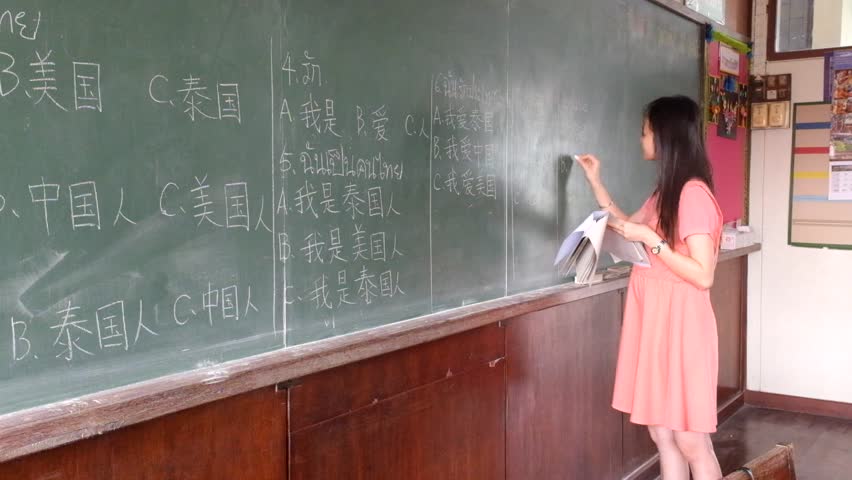 ไทย
B. 美国 C. 泰国
中国人 C. 美国人
B. 泰国人 C. 中国人
4. รัก
A. 我是 B. 爱 C. 人
5. ฉันเป็นคนไทย
A. 我是泰国人
B. 我是美国人
C. 我是泰国人
A. 我爱泰国
B. 我爱中国
C. 我爱美国